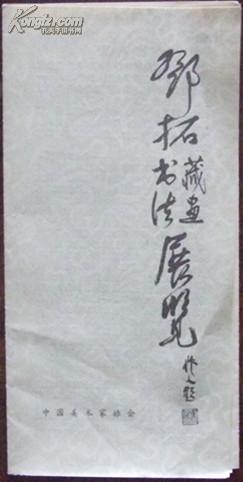 鄧拓
书法
藏画
展览
作人题
中国美术家协会
孔夫子旧书网